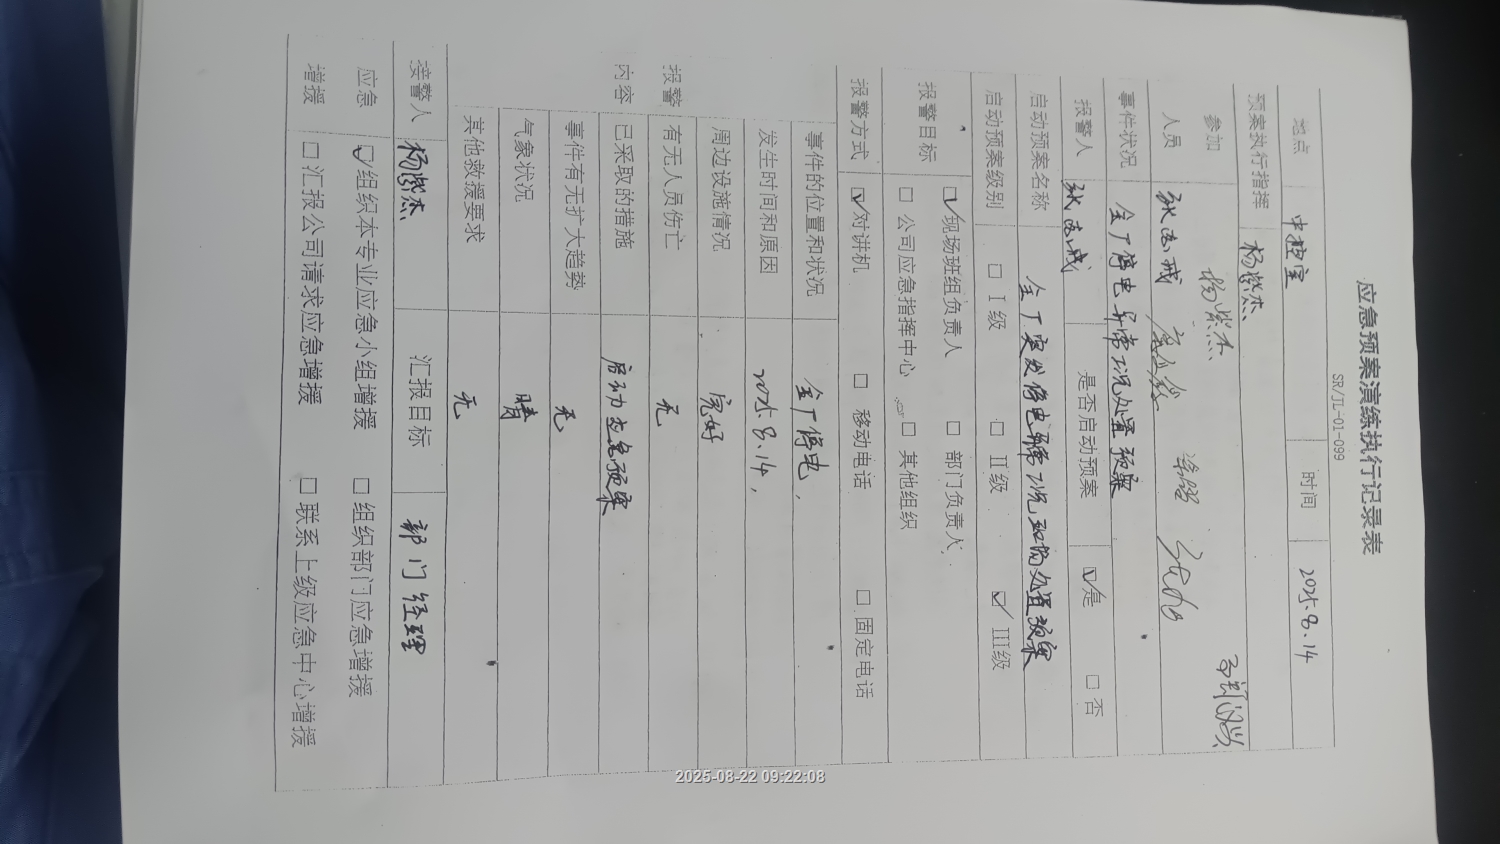 应急预案演练执行记录表
SR/JL-01-099
地点 中控室 时间 2025.8.14
预案执行指挥 杨紫杰
参加 杨紫杰
人员
事件状况 全厂停电异常状况处置预案
报警人 是否启动预案 ☑是 □否
启动预案名称 全厂突发停电异常状况现场处置预案
启动预案级别 □Ⅰ级 □Ⅱ级 ☑Ⅲ级
报警目标 ☑现场班组负责人 □部门负责人
□公司应急指挥中心 □其他组织
报警方式 ☑对讲机 □移动电话 □固定电话
报警
内容
事件的位置和状况 全厂停电,
发生时间和原因 2025.8.14,
周边设施情况 完好
有无人员伤亡 无
已采取的措施 启动应急预案
事件有无扩大趋势 无
气象状况 晴
其他救援要求 无
接警人 杨紫杰 汇报目标 部门经理
应急 ☑组织本专业应急小组增援 □组织部门应急增援
增援 □汇报公司请求应急增援 □联系上级应急中心增援
2025-08-22 09:22:08